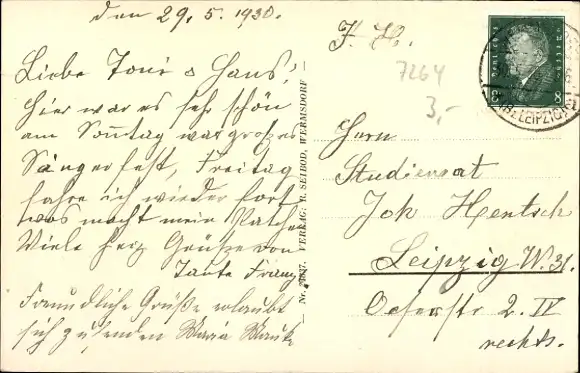 den 29.5.1930.
Liebe Toni & Hans!
Hier war es sehr schön
am Sonntag war großes
Sängerfest, Freitag
fahre ich wieder fort
was macht mein
Viele herz Grüße von
Tante
Freundliche Grüße erlaubt
sich zu senden Maria
Nr. VERLAG: R. SEIBOD, WERMSDORF
F. H.
7264
3,-
DEUTSCHES REICH
8 8
LEIPZIG
Herrn
Studienrat
Joh Hentsch
Leipzig W. 31.
2. IV
rechts.